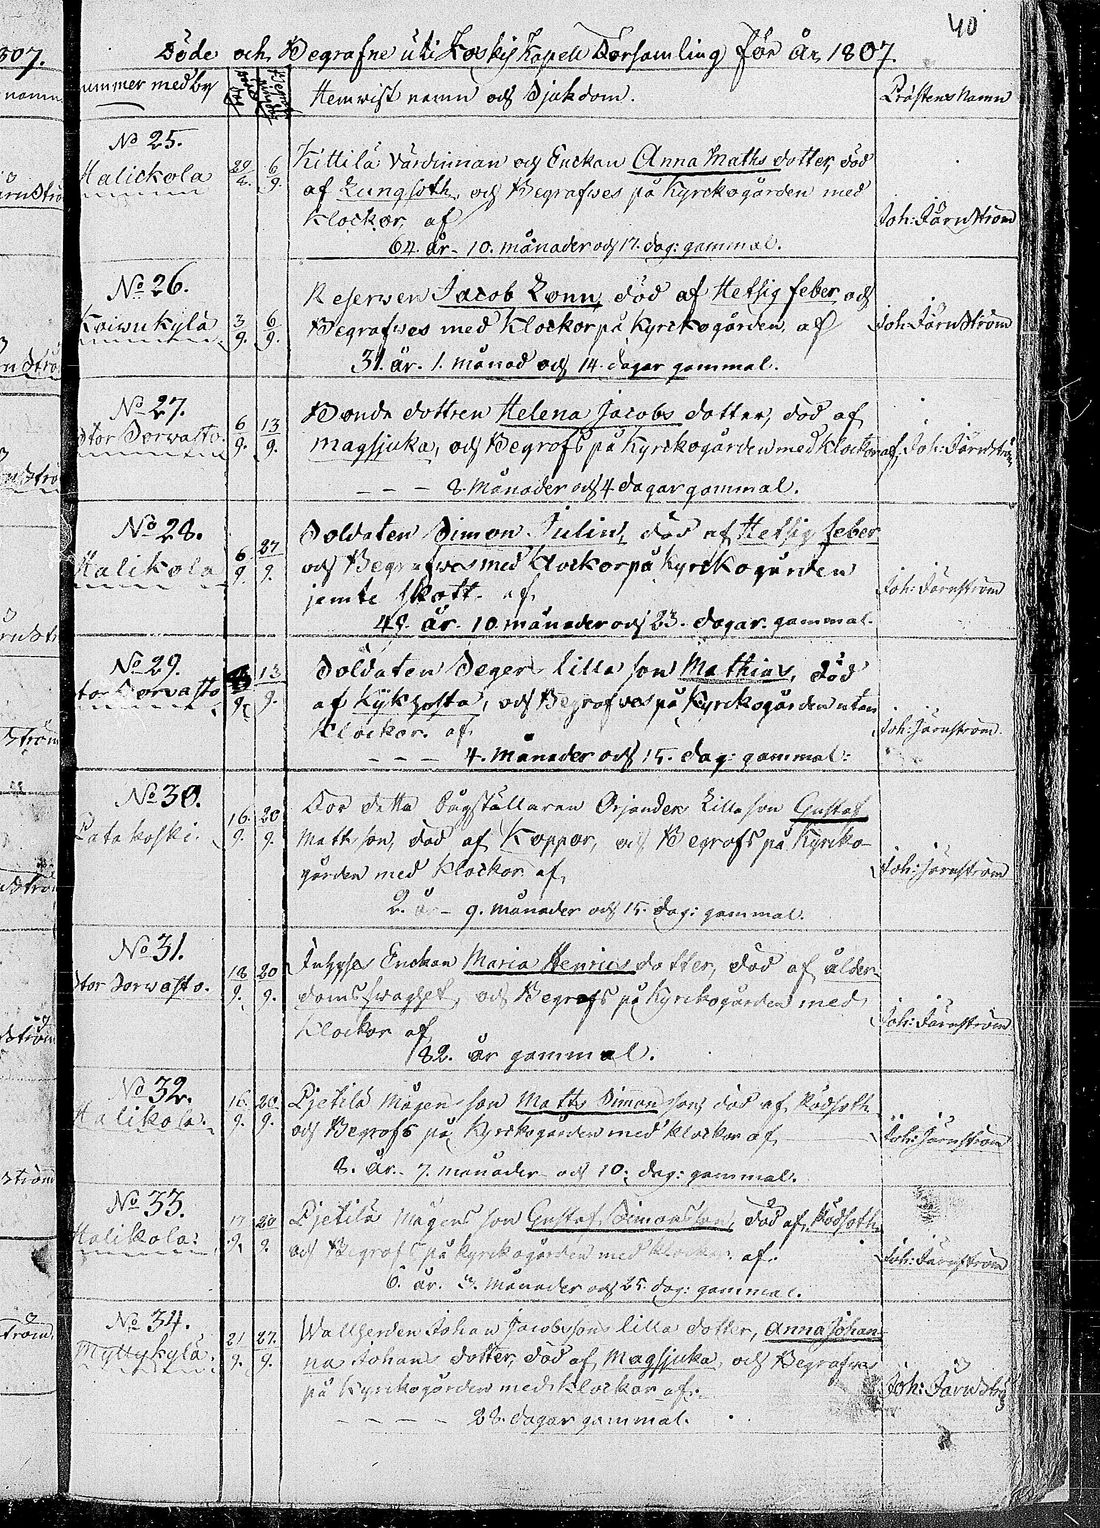 40
Döde och Begrafne uti Koskis Kapell Församling för år 1807.
307.
Nummer med by
Hemwist namn och Sjukdom.
Prästens Namn
No 25.
Halickola
29 6
Kittilä Värdinnan och Enckan Anna Maths dotter, död
af Lungsoth, och Begrafwes på Kyrckogården med
Klockor, af
64. år. 10. månader och 17. dag: gammal.
Joh: Järnström
No 26.
Koiwukylä
3 6
9. 9.
Reserwen Jacob Lönn, död af Hetsig feber och
Begrafwes med Klockor på Kyrckogården, af
31. år. 1. månad och 14. dagar gammal.
Joh: Järnström
No 27.
Stor Sorwasto.
6 13
9. 9.
Bonde dottren Helena Jacobs dotter, död af
magsjuka, och Begrofs på Kyrckogården med Klockor af,
8. Månader och 4 dagar gammal.
Joh: Järnström
No 28.
Halikola
6 27
9. 9.
Soldaten Simon Julin, död af Hetsig feber
och Begrafwes med Klockor på Kyrckogården
jemte skott. af
48. år. 10. månader och 23. dagar. gammal.
Joh: Järnström
No 29.
Stor Sorvasto
13
9. 9.
Soldaten Seger lilla son Mathias, död
af Kykhosta, och Begrafwes på Kyrckogården utan
Klockor. af
4. månader och 15. dag: gammal:
Joh: Järnström
No 30.
Patakoski.
16. 20
9. 9.
Tor detta Augställaren Orjanders Lilla son Gustaf
Mathson, död af Koppor, och Begrofs på Kyrcko-
gården med Klockor af,
2. år - 9. månader och 15. dag: gammal.
Joh: Järnström
No 31.
Stor Sorwasto.
18 20
9. 9.
Enckan Maria Henrics dotter, död af ålder-
domsswaghet, och Begrofs på Kyrckogården med
Klockor af,
82. år gammal.
Joh: Järnström
No 32.
Halikola.
16. 20
9. 9.
Pjetilä Mågens son Maths Simonson, död af Rödsoth
och Begrofs på Kyrckogården med Klockor af
8. år. 7. månader och 10. dag: gammal.
Joh: Järnström
No 33.
Halikola:
17 20
9. 9.
Pjetilä Mågens son Gustaf Simonsson, död af Rödsoth
och Begrofs på Kyrckogården med Klockor. af.
6. år. 3. månader och 25. dag: gammal.
Joh: Järnström
No 34.
Myllykylä.
21 27.
9. 9.
Johan Jacobssons lilla dotter, Anna Johan
na Johans dotter, död af Magsjuka, och Begrafwes
på Kyrckogården med Klockor af.
28. dagar gammal.
Joh: Järnström